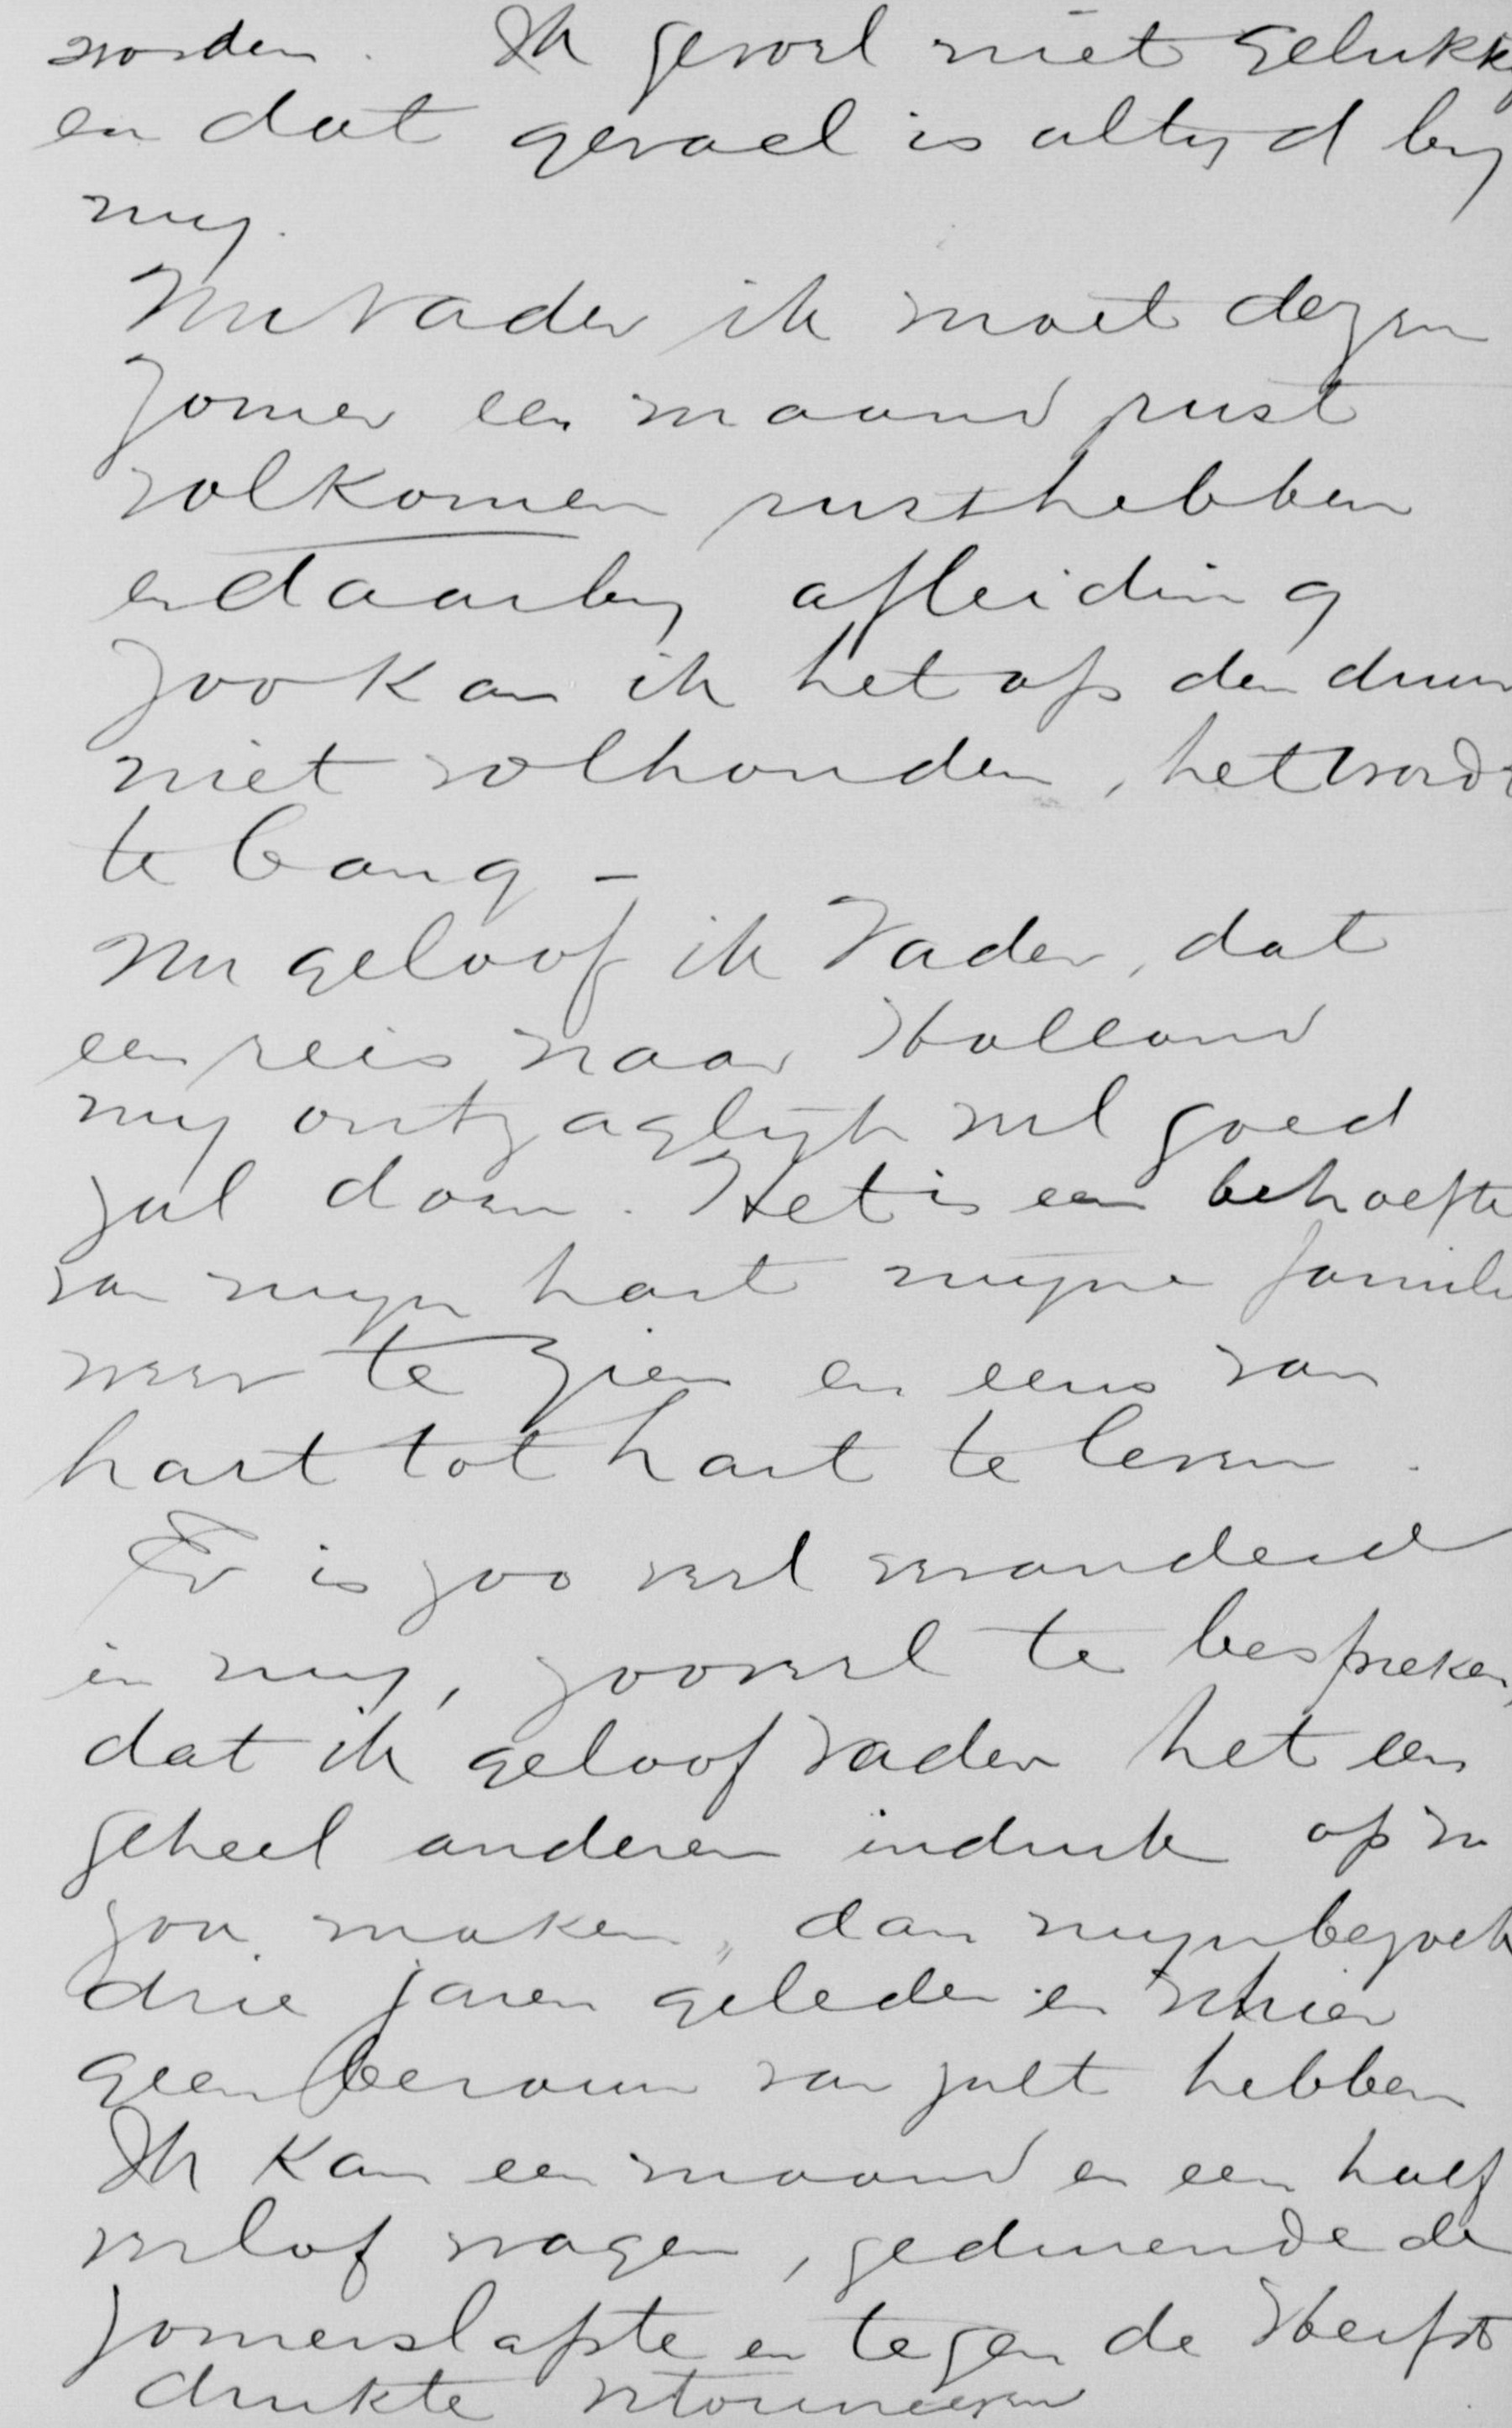 worden. Ik gevoel niet gelukk
en dat gevoel is altyd by
my.
Nu Vader ik moet dezen
zomer een maand rust
volkomen rust hebben
en daarby afleiding
zoo kan ik het op den duur
niet volhouden, het wordt
te bang -
Nu geloof ik Vader, dat
een reis naar Holland
my ontzaglyk veel goed
zal doen. Het is een behoefte
van myn hart myne famili
weer te zien en eens van
hart tot hart te leven.
Er is zoo veel veranderd
in my, zooveel te bespreken,
dat ik geloof vader het een
geheel anderen indruk op u
zou maken, dan myn bezoek
drie jaren geleden en
geen berouw van zult hebben
Ik kan een maand en een half
verlof vragen, gedurende de
zomerslapte en tegen de Herfst
drukte retourneeren